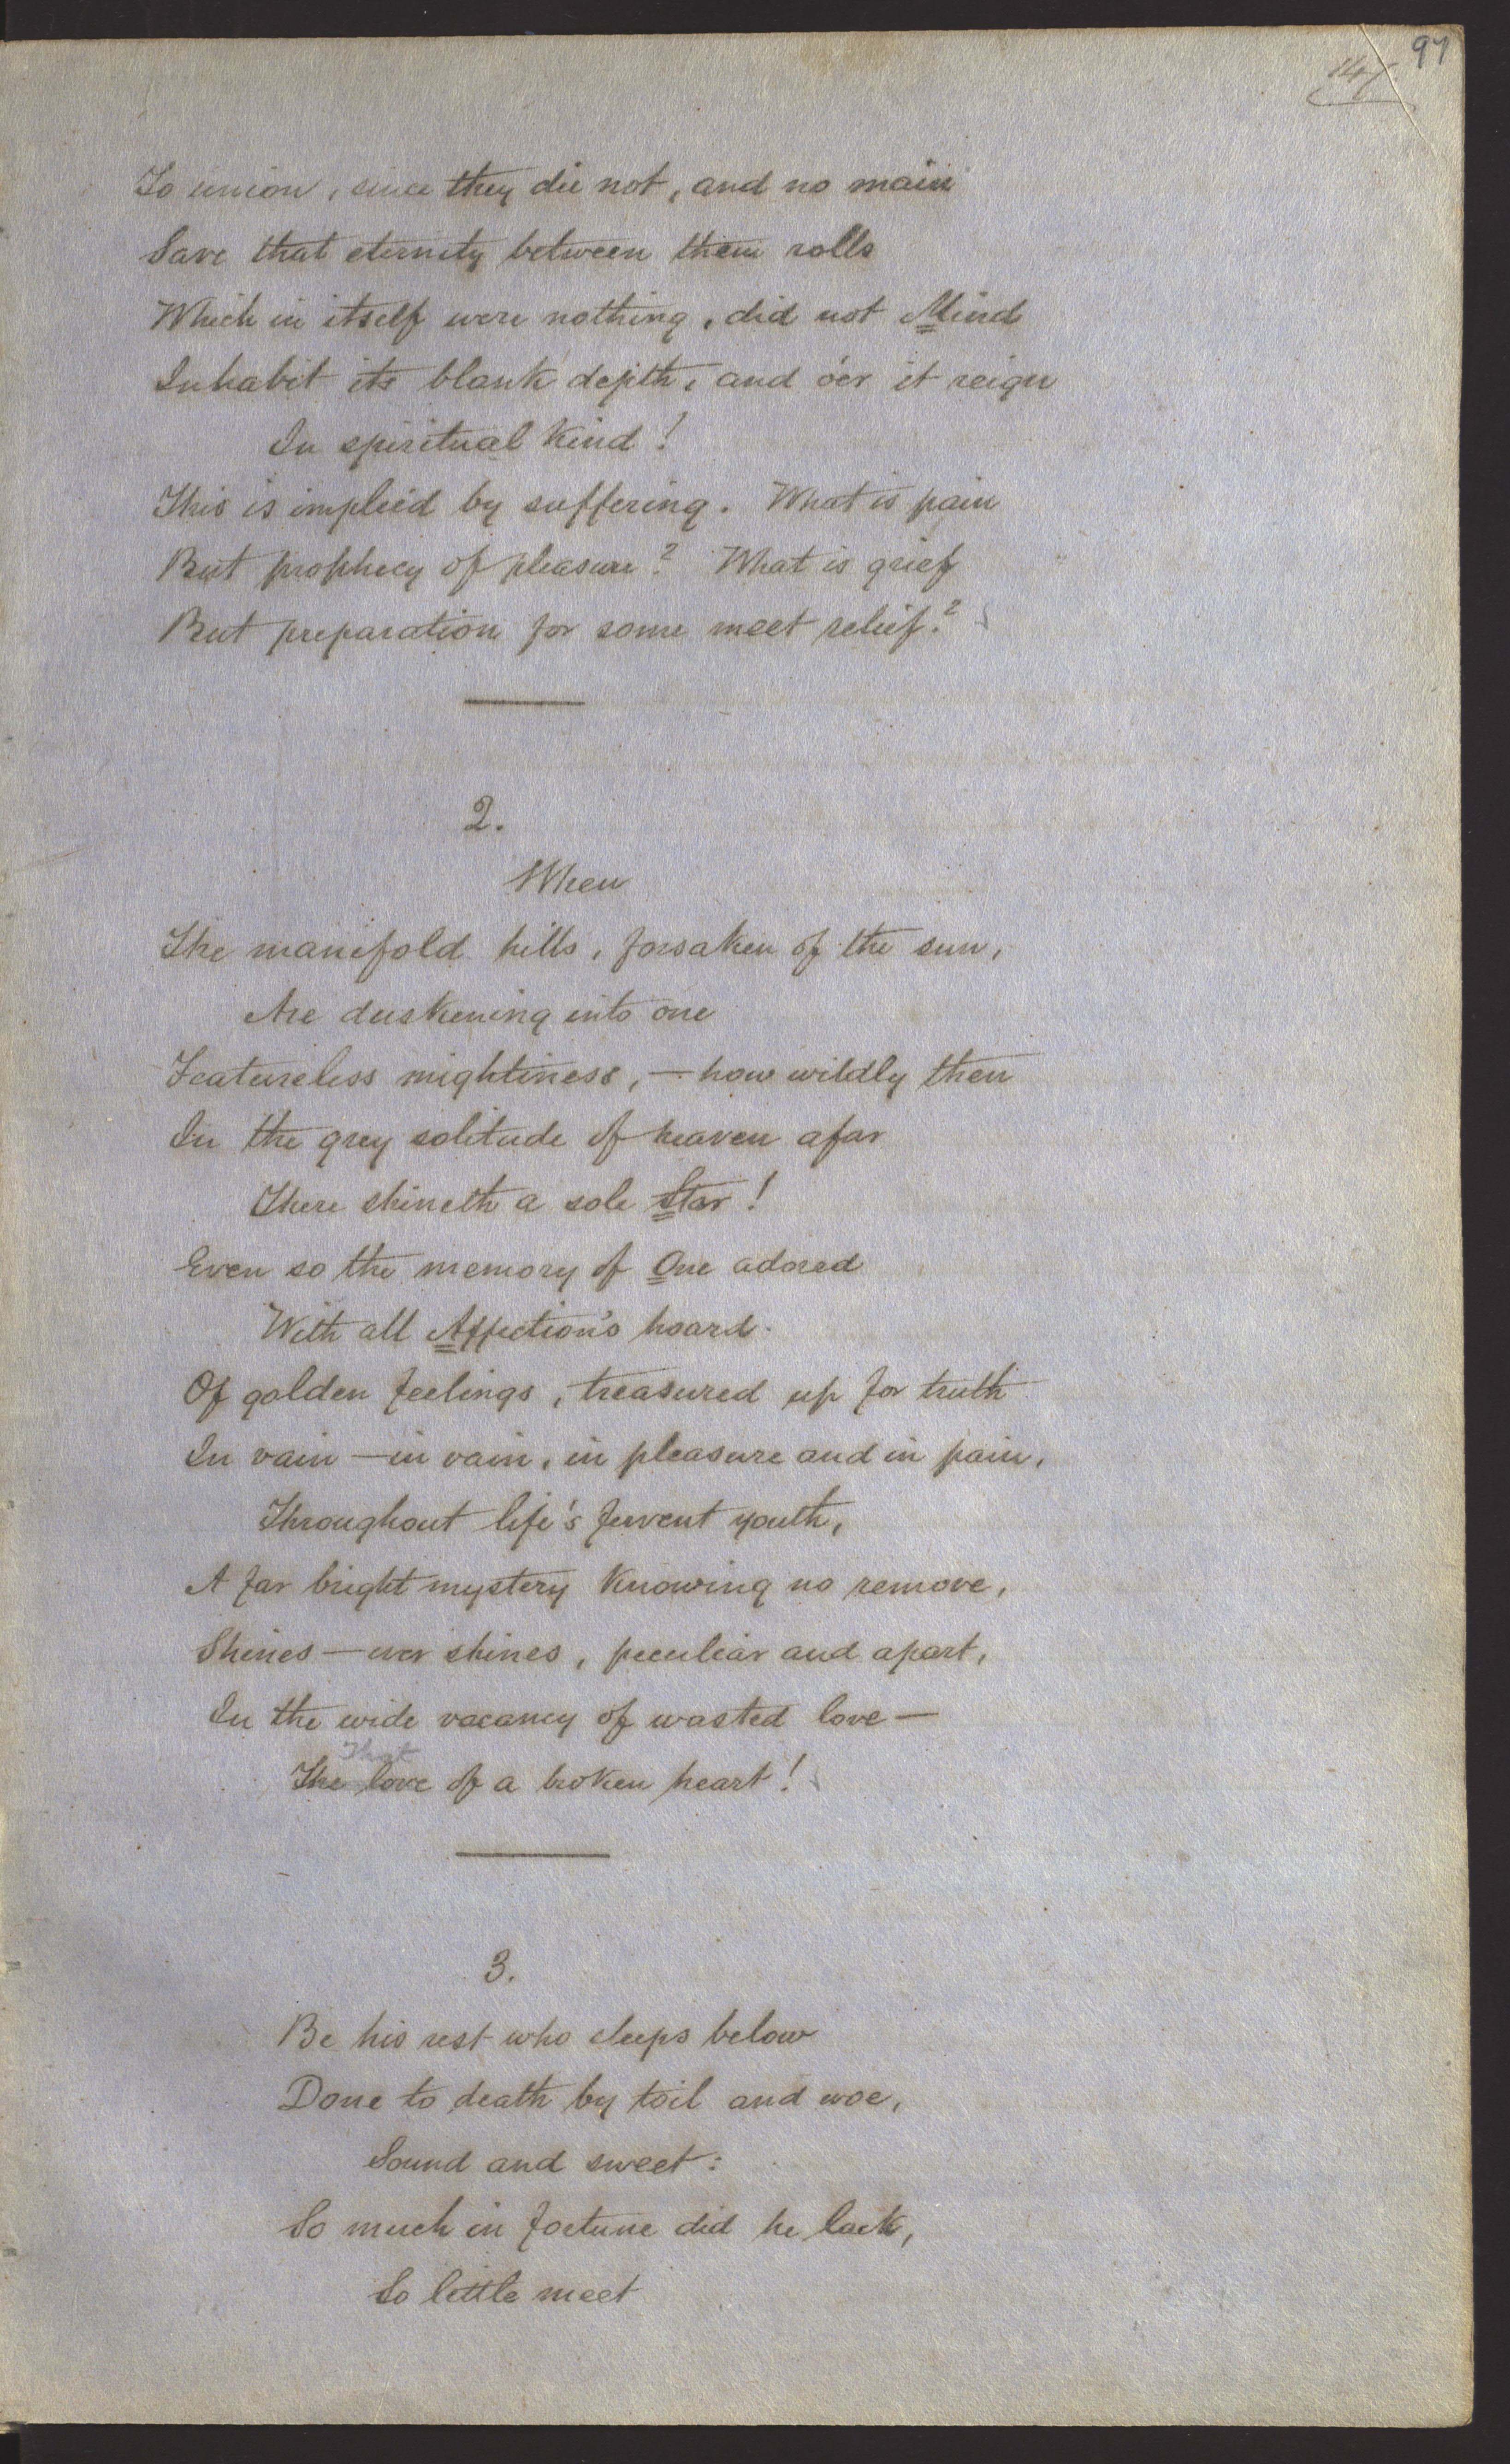 97
To union, since they die not, and no main
Save that eternity between them rolls
Which in itself were nothing, did not Mind
Inhabit its blank depth, and o'er it reign
In spiritual kind!
This is implied by suffering. What is pain
But prophecy of pleasure? What is grief
But preparation for some meet relief?
2.
When
The manifold hills, forsaken of the sun,
Are duskening into one
Featureless mightiness, — how wildly then
In the grey solitude of heaven afar
There shineth a sole Star!
Even so the memory of One adored
With all Affection's hoard
Of golden feelings, treasured up for truth
In vain — in vain, in pleasure and in pain,
Throughout life's fervent youth,
A far bright mystery knowing no remove,
Shines — ever shines, peculiar and apart,
In the wide vacancy of wasted love —
That
The love of a broken heart!
3.
Be his rest who sleeps below
Done to death by toil and woe,
Sound and sweet:
So much in fortune did he lack,
So little meet